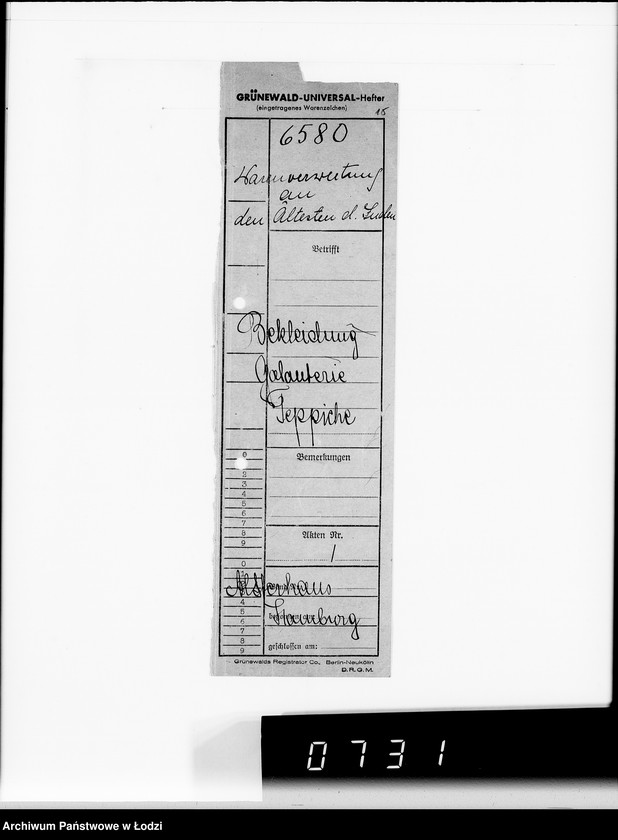 GRÜNEWALD-UNIVERSAL-Hefter
(eingetragenes Warenzeichen)
15
6580
Warenverwertung
an
den Ältesten d. Juden
Betrifft
Bekleidung
Galanterie
Teppiche
0
2
3
4
5
6
7
8
9
Bemerkungen
Akten Nr.
/
0
Alsterhaus
4
5
Hamburg
6
7
8
9
geschlossen am:
Grünewalds Registrator Co., Berlin-Neukölln
D.R.G.M.
0731
Archiwum Państwowe w Łodzi